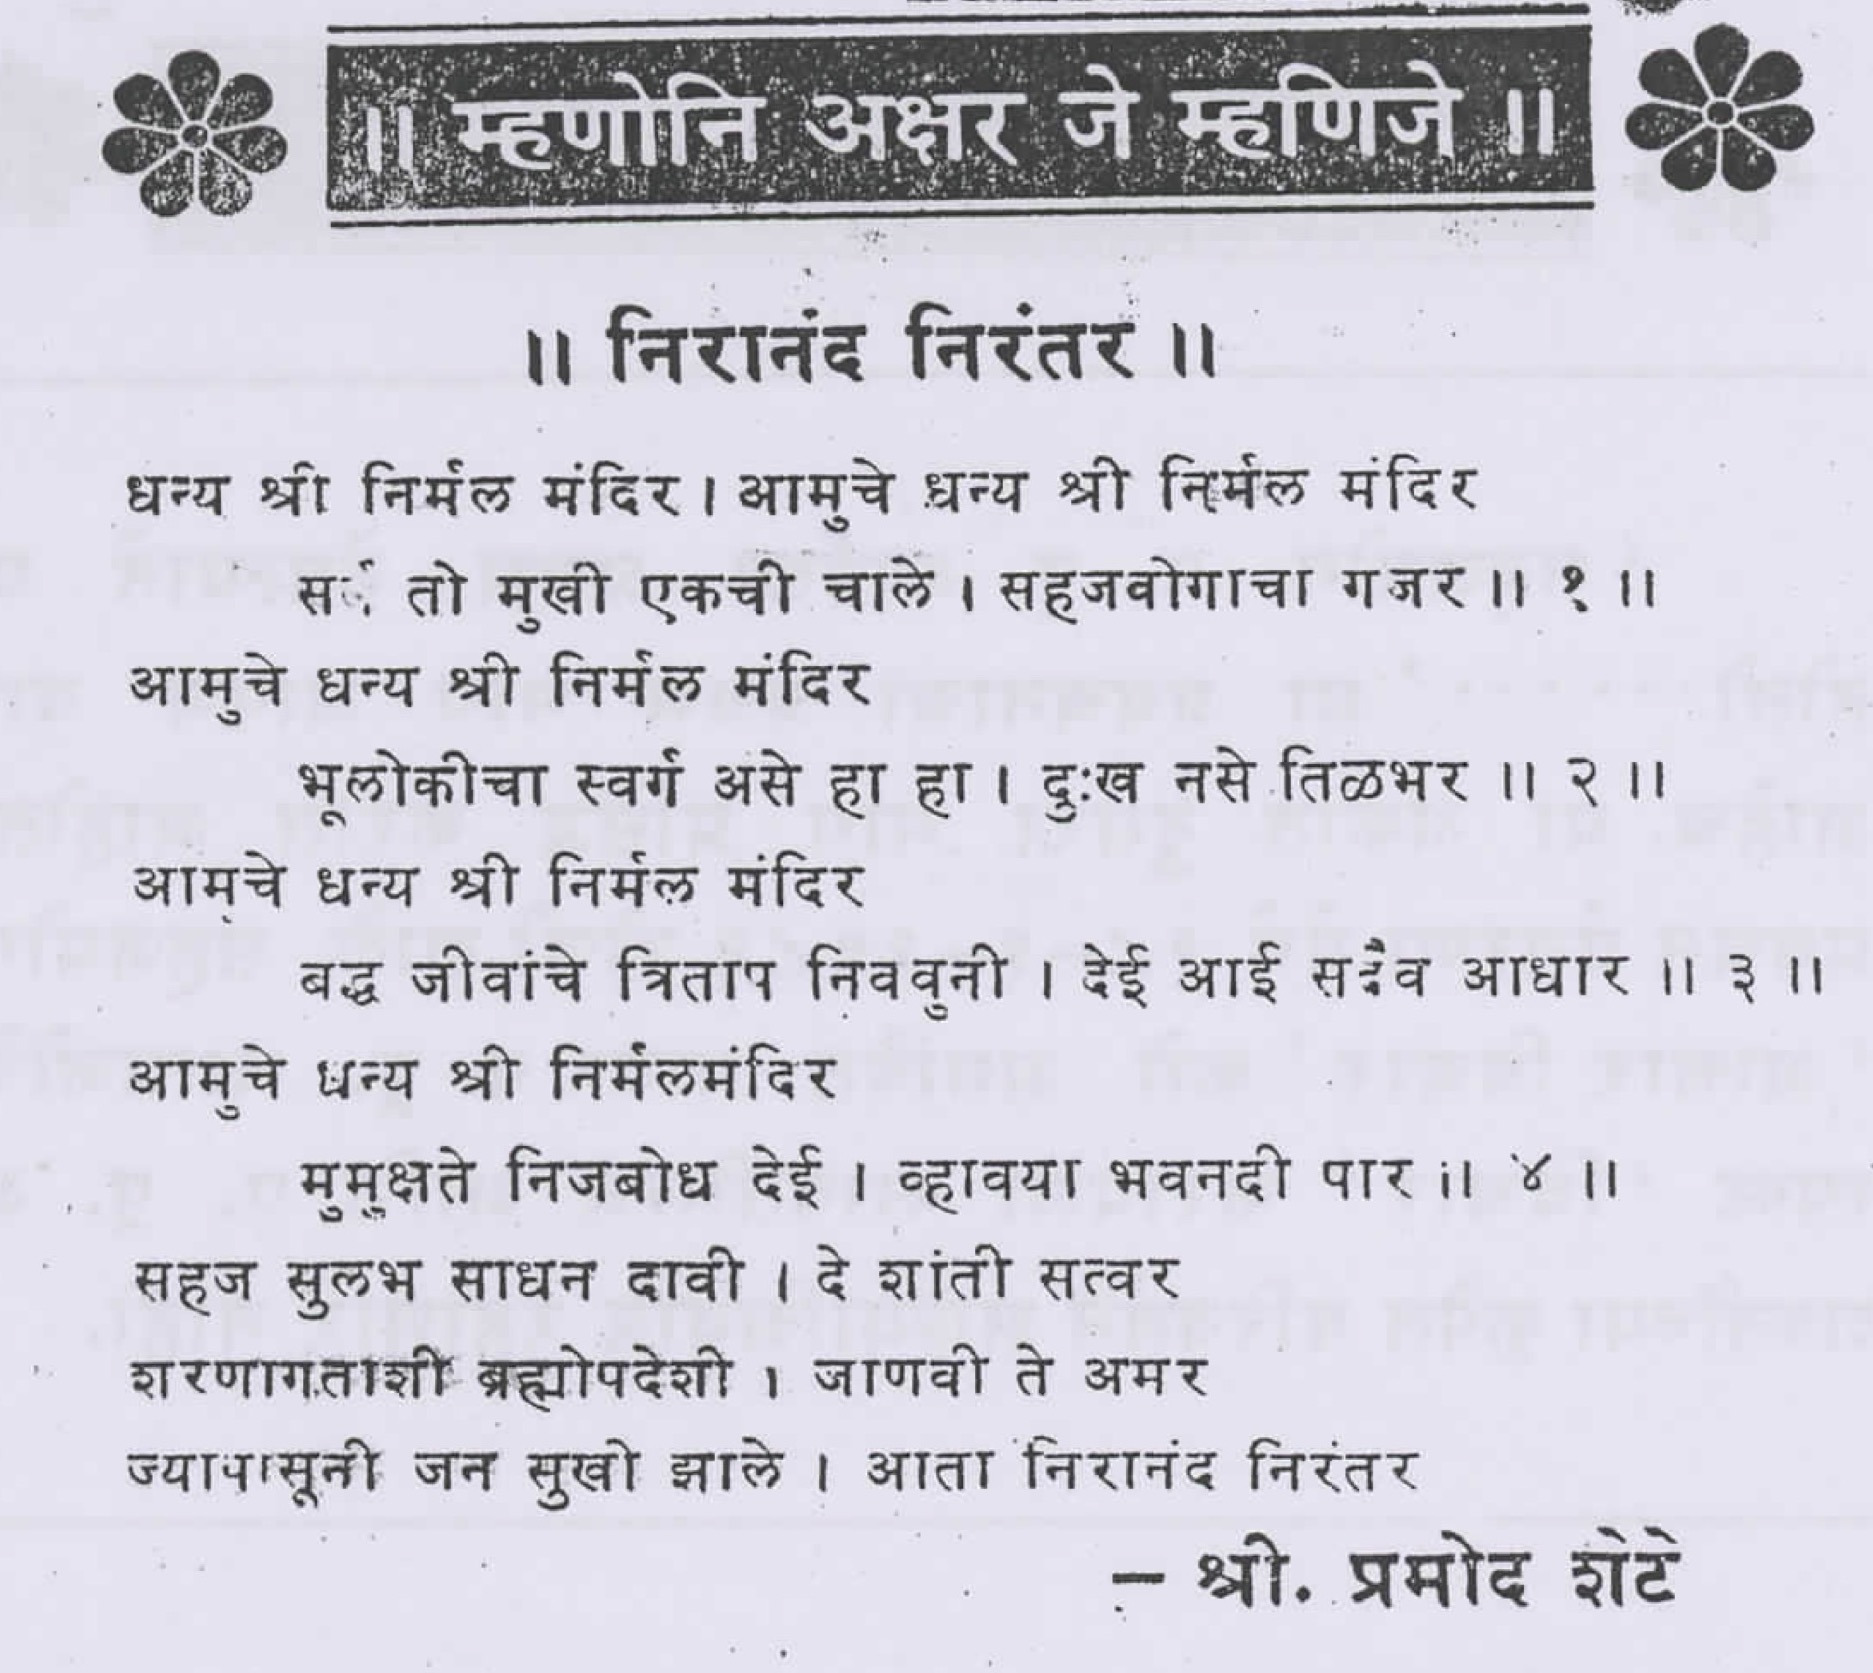 ॥ म्हणोनि अक्षर जे म्हणिजे ॥
॥ निरानंद निरंतर ॥
धन्य श्री निर्मल मंदिर । आमुचे धन्य श्री निर्मल मंदिर
तो मुखी एकची चाले । सहजवोगाचा गजर ॥ १ ॥
आमुचे धन्य श्री निर्मल मंदिर
भूलोकीचा स्वर्ग असे हा हा । दुःख नसे तिळभर ॥ २ ॥
आमुचे धन्य श्री निर्मल मंदिर
बद्ध जीवांचे त्रिताप निववुनी । देई आई सदैव आधार ॥ ३ ॥
आमुचे धन्य श्री निर्मलमंदिर
मुमुक्षते निजबोध देई । व्हावया भवनदी पार ॥ ४ ॥
सहज सुलभ साधन दावी । दे शांती सत्वर
शरणागताशी ब्रह्मोपदेशी । जाणवी ते अमर
ज्यापासूनी जन सुखी झाले । आता निरानंद निरंतर
– श्री. प्रमोद शेटे